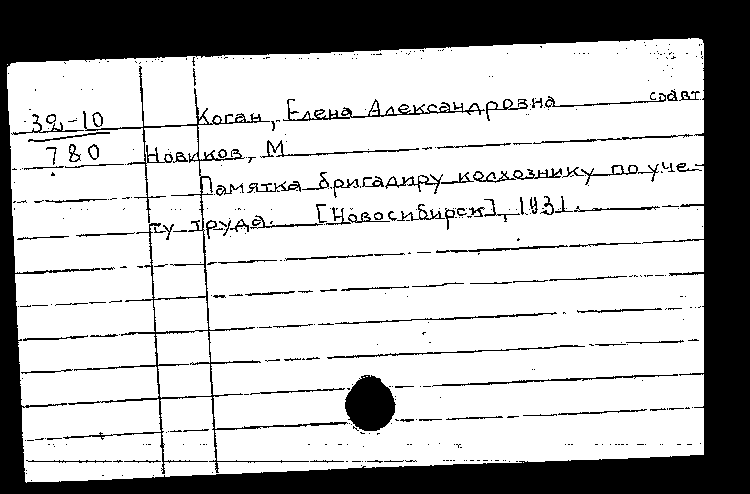 32-10 Коган, Елена Александровна соавт
780 Новиков, М
Памятка бригадиру колхознику по уче-
ту труда. [Новосибирск], 1931.